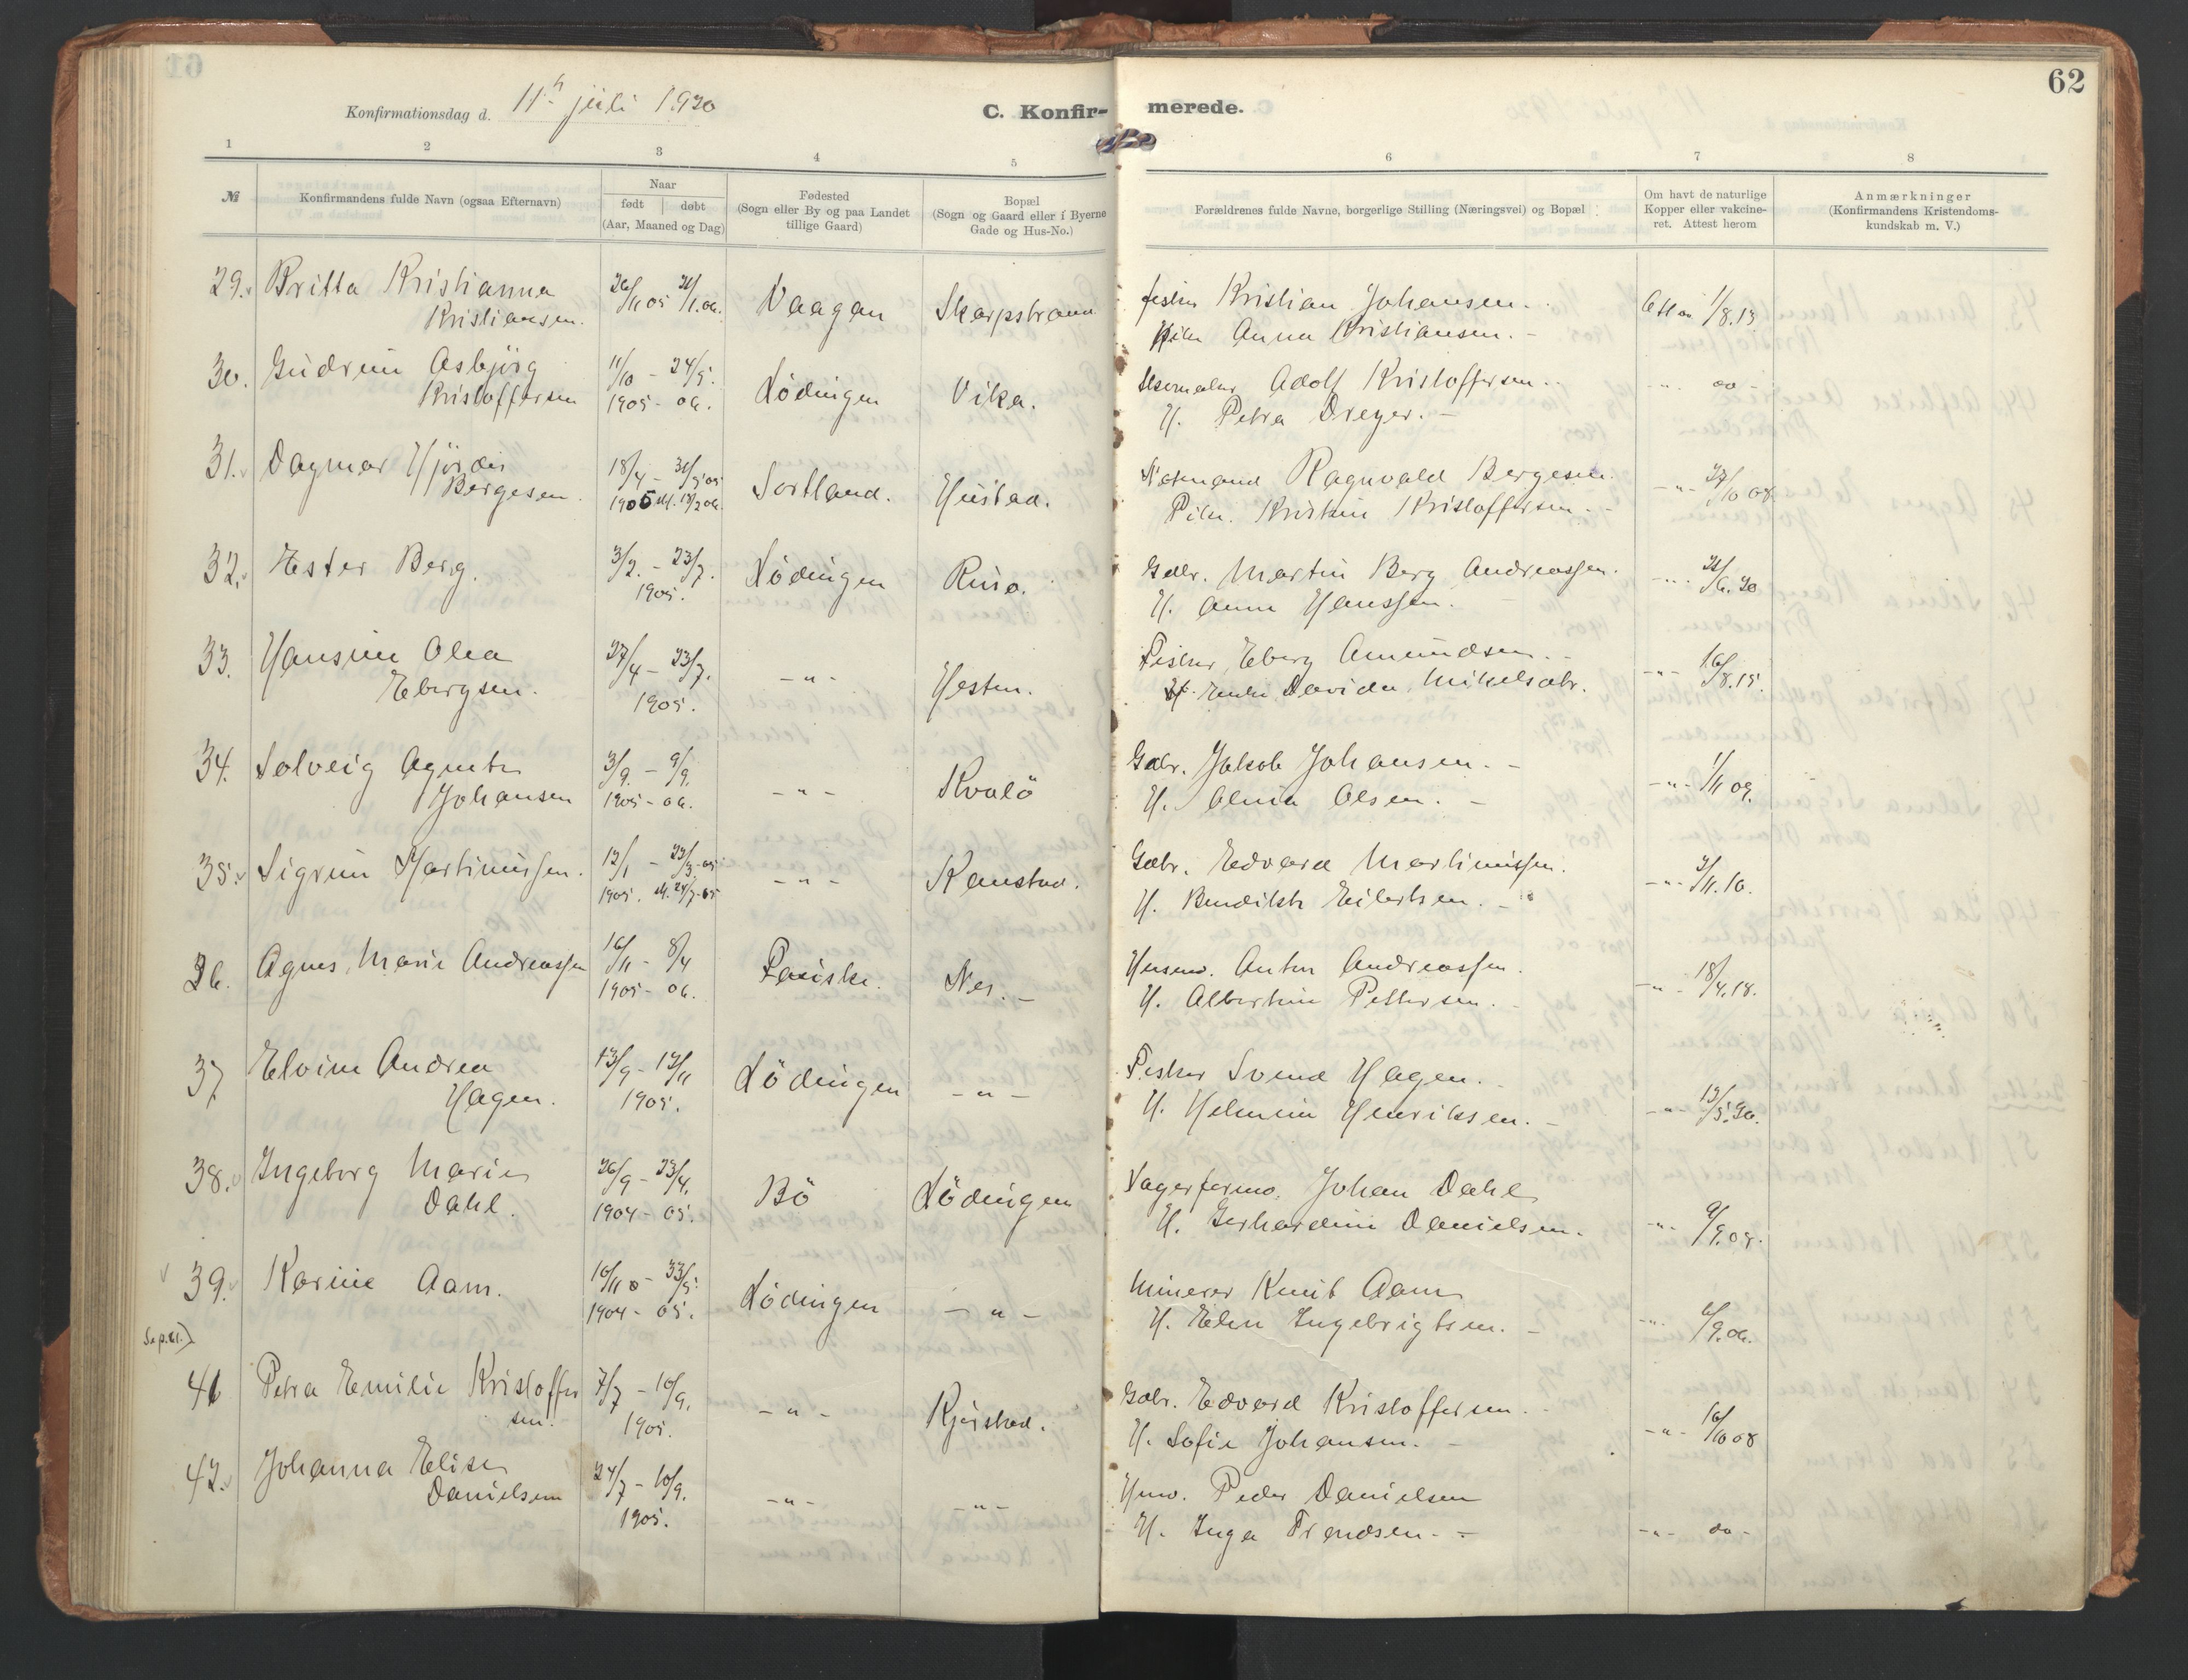 62
Konfirmationsdag d. 11te juli 1920
C. Konfirmerede.
1 2 3 4 5 6 7 8
№
Konfirmandens fulde Navn (ogsaa Efternavn)
Naar
født døbt
(Aar, Maaned og Dag)
Fødested
(Sogn eller By og paa Landet
tillige Gaard)
Bopæl
(Sogn og Gaard eller i Byerne
Gade og Hus-No.)
Forældrenes fulde Navne, borgerlige Stilling (Næringsvei) og Bopæl
Om havt de naturlige
Kopper eller vakcine-
ret. Attest herom
Anmærkninger
(Konfirmandens Kristendoms-
kundskab m. V.)
29. Britta Kristianna
Kristiansen.
26/11 05 21/1.06.
Vaagan
Fisker Kristian Johansen.
Anna Kristiansen.
1/8.19
30. Gudrun Asbjørg
Kristoffersen
11/10 - 24/5.
1905 - 06.
Lödingen
Vika.
Adolf Kristoffersen.
H. Petra Dreyer.
-"- do -
31. Dagmar Hjørdis
Bergesen.
18/4 - 31/5 05
1905 st. 18/2 06.
Sortland.
Hustad.
Notmand Ragnvald Bergesen.
Kristoffersen.
-"- 27/10 08
32. Ester Berg.
3/2. - 23/7.
1905.
Lödingen
Gdbr. Martin Berg Andreassen.
H. Anna Hanssen.
-"- 21/6.20
33. Hansine Olea
Ebergsen.
27/4 - 23/7.
1905.
-"-
Hesten.
Fisker Eberg Amundsen.
Davida Mikelsdtr.
-"- 16/8.15.
34. Solveig Agnete
Johansen
3/9. - 9/9.
1905 - 06.
-"-
Kvalö
Gdbr. Jakob Johansen.
H. Olsen.
-"- 1/11 09.
35. Sigrun Martinussen.
12/1 - 23/3.05
1905. st. 24/7-05
-"-
Kanstad.
Gdbr. Edvard Martinussen.
H. Bendikte Eilertsen.
-"- 3/11.10.
36. Agnes Marie Andreassen
16/11 - 8/4
1905 - 06.
Fauske.
Nes.
Husm. Anton Andreassen.
H. Albertine Pettersen.
-"- 18/4.18.
37. Elvine Andrea
Hagen.
13/9 - 12/11
1905.
Lödingen
-"-
Fisker Svend Hagen.
H. Helmine Henriksen.
-"- 13/5.20.
38. Ingeborg Marie
Dahl.
26/9 - 23/4.
1904 - 05.
Bö
Lödingen
Johan Dahl
H. Gerhardine Danielsen.
-"- 9/9.08.
39. Karine Aam.
16/11 - 23/5.
1904 - 05.
Lödingen
-"-
Minerer Knut Aam
H. Elen Ingebrigtsen.
-"- 6/9.06.
41 Petra Emilie Kristoffer
sen.
7/7 - 10/9.
1905.
-"-
Kjerstad.
Gdbr. Edvard Kristoffersen.
H. Sofie Johansen.
-"- 16/10 08
42. Johanna Elise
Danielsen
24/7 - 10/9.
1905.
-"-
-"-
Peder Danielsen
H. Inga Frendsen.
-"- do -